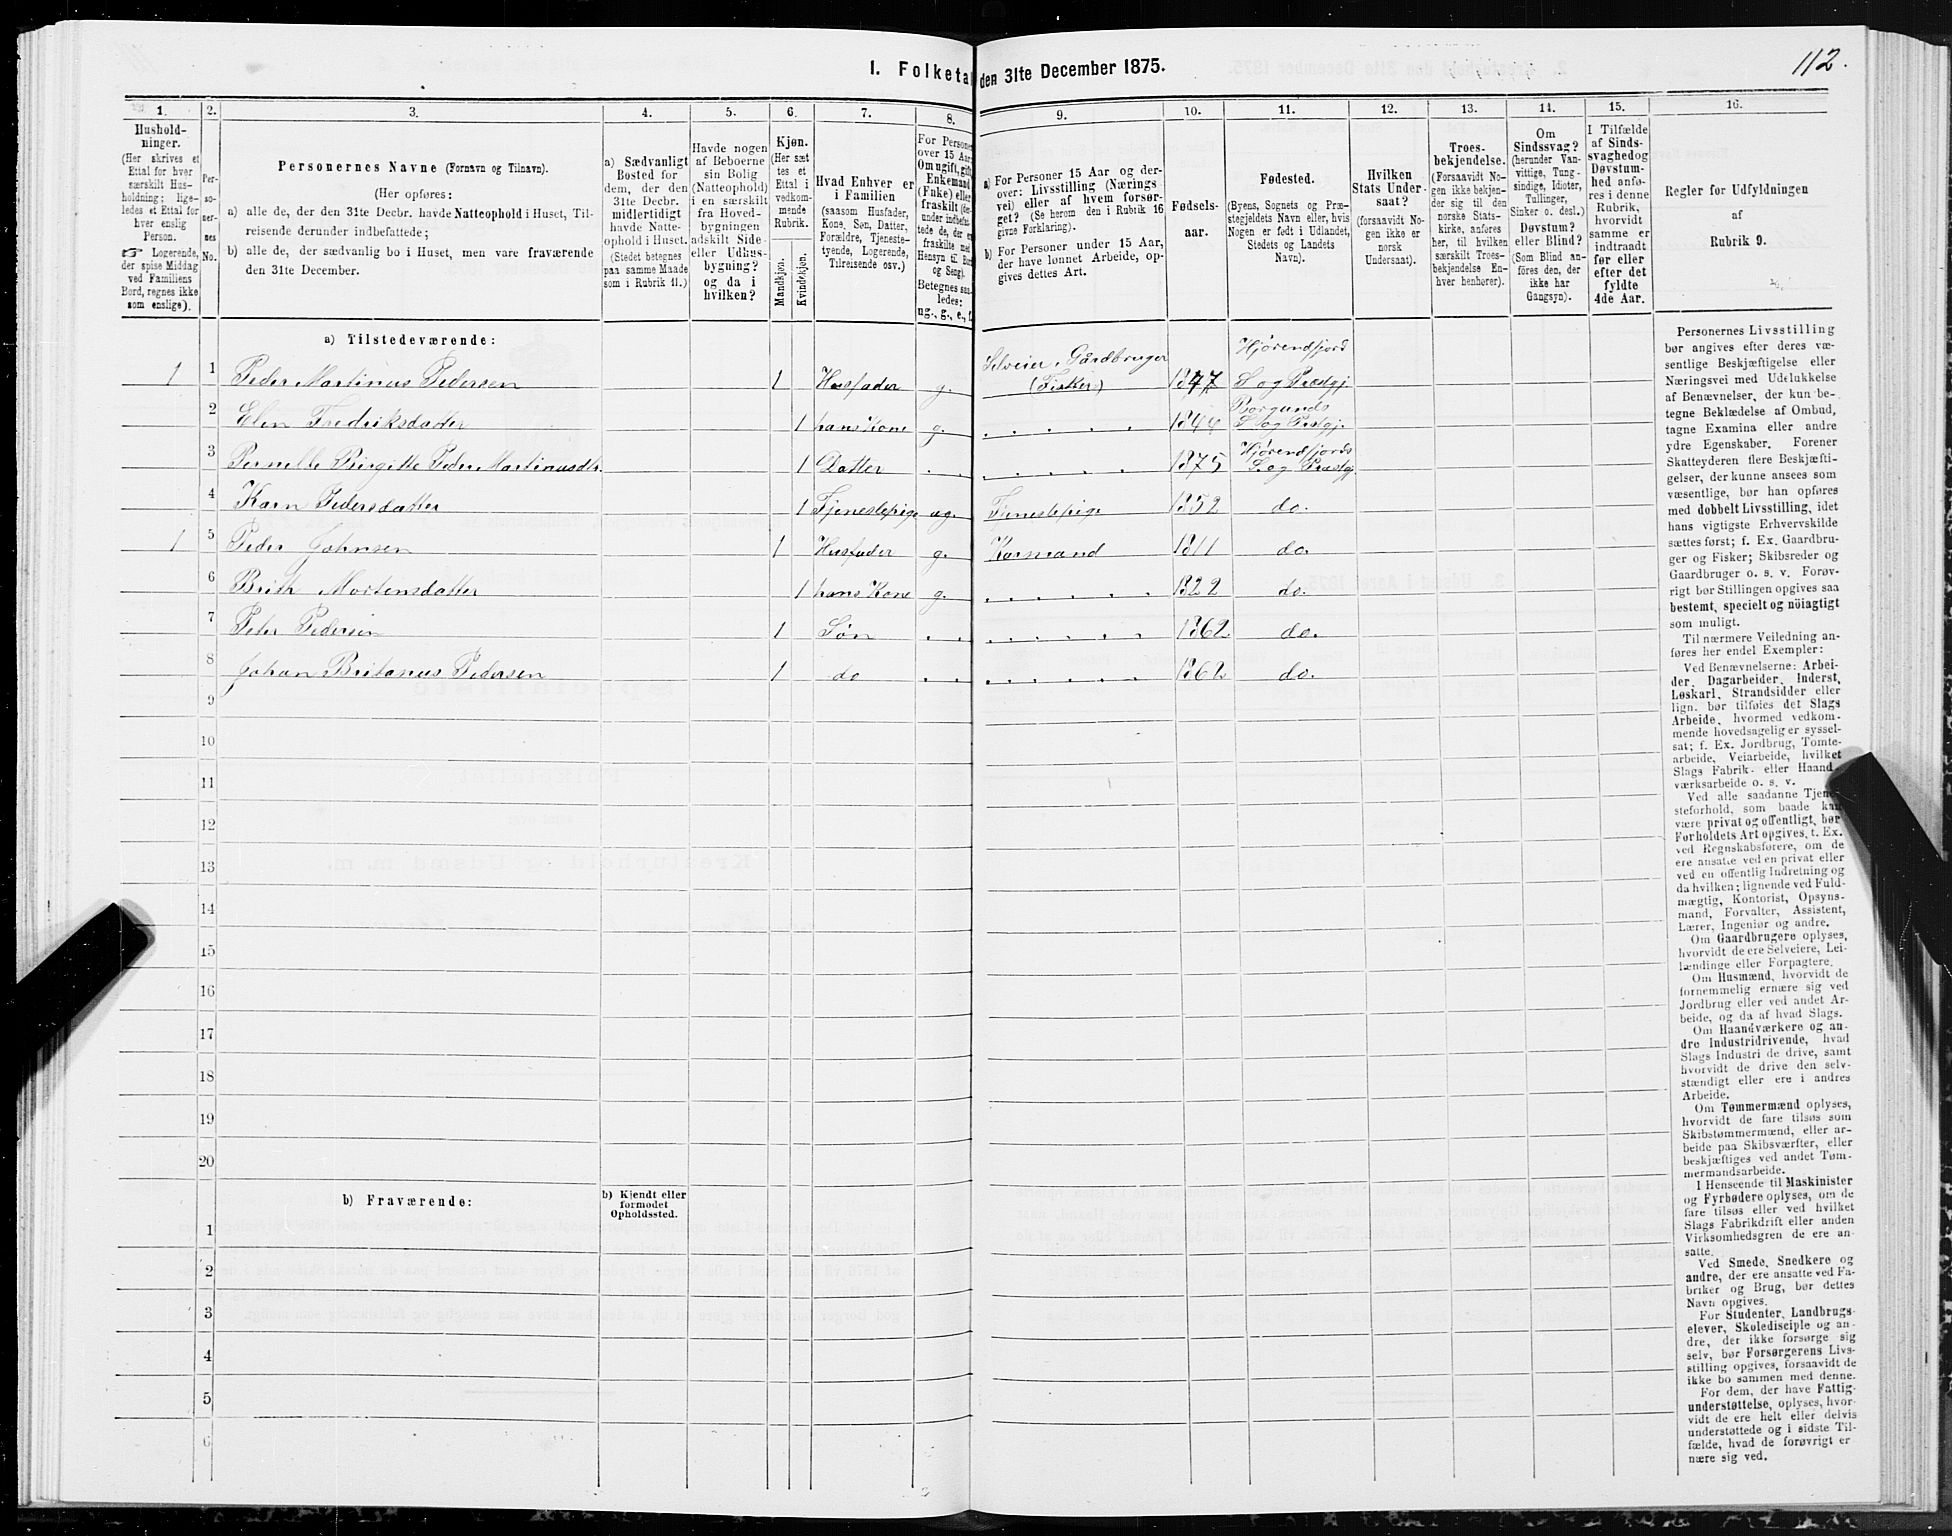 112.
I. Folketal den 31te December 1875.
1. 2. 3. 4. 5. 6. 7. 8. 9. 10. 11. 12. 13. 14. 15. 16.
Hushold-
ninger.
(Her skrives et
Ettal for hver
særskilt Hus-
holdning; lige-
ledes et Ettal for
hver enslig
Person.
☞ Logerende,
der spise Middag
ved Familiens
Bord, regnes ikke
som enslige).
Per-
so-
ner-
nes
No.
Personernes Navne (Fornavn og Tilnavn).
(Her opføres:
a) alle de, der den 31te Decbr. havde Natteophold i Huset, Til-
reisende derunder indbefattede;
b) alle de, der sædvanlig bo i Huset, men vare fraværende
den 31te December.
a) Sædvanligt
Bosted for
dem, der den
31te Decbr.
midlertidigt
havde Natte-
ophold i Huset.
(Stedet betegnes
paa samme Maade
som i Rubrik 11.)
Havde nogen
af Beboerne
sin Bolig
(Natteophold)
i en særskilt
fra Hoved-
bygningen
adskilt Side-
eller Udhus-
bygning?
og da i
hvilken?
Kjøn.
(Her sæt
tes et
Ettal i
vedkom-
mende
Rubrik.
Mandkjøn.
Kvindekjøn.
Hvad Enhver er
i Familien
(saasom Husfader,
Kone, Søn, Datter,
Forældre, Tjeneste-
tyende, Logerende,
Tilreisende osv.)
For Persone
over 15 Aar
Om ugift, gift
Enkemand
(Fake) eller
fraskilt (der-
under indbefat-
tede de, der ere
fraskilte med
Hensyn til Bord
og Seng).
Betegnes saa-
ledes:
ug., g., e., f.
a) For Personer 15 Aar og der-
over: Livsstilling (Nærings
vei) eller af hvem forsør-
get? (Se herom den i Rubrik 16
givne Forklaring).
b) For Personer under 15 Aar,
der have lønnet Arbeide, op-
gives dettes Art.
Fødsels-
aar.
Fødested.
(Byens, Sognets og Præ-
stegjeldets Navn eller, hvis
Nogen er født i Udlandet,
Stedets og Landets
Navn).
Hvilken
Stats Under-
saat?
(forsaavidt No-
gen ikke er
norsk
Undersaat).
Troes-
bekjendelse.
(Forsaavidt No-
gen ikke bekjen-
der sig til den
norske Stats-
kirke, anføres
her, til hvilken
særskilt Troes-
bekjendelse En-
hver henhører).
Om
Sindssvag?
(herunder Van-
vittige, Tung-
sindige, Idioter,
Tullinger,
Sinker o. desl.)
Døvstum?
eller Blind?
(Som Blind an-
føres den, der
ikke har
Gangsyn).
I Tilfælde
af Sinds-
svaghed og
Døvstum-
hed anfø-
res i denne
Rubrik,
hvorvidt
samme er
indtraadt
før eller
efter det
fyldte
4de Aar.
Regler for Udfyldningen
af
Rubrik 9.
a) Tilstedeværende:
1 1 Peder Martinus Pedersen 1 Husfader g. Selveier, Gårdbruger (Fisker) 1847 Hjørendfjord S og Præstgj.
2 Elen Fredriksdatter 1 hans Kone g. 1844 Borgunds S og Prstgj.
3 Pernelle Birgitte Peder Martinusdtr. 1 Datter 1875 Hjørendfjords S. og Præstgj
4 Karn Pedersdatter 1 Tjenestepige ug. Tjenestepige 1852 do.
1 5 Peder Johnsen 1 Husfader g. Kaarmand 1811 do.
6 Brith Mortensdatter 1 hans Kone g. 1822 do.
7 Peter Pedersen 1 Søn 1862 do.
8 Johan Britanus Pedersen 1 do 1862 do.
9
10
11
12
13
14
15
16
17
18
19
20
b) Fraværende:
b) Kjendt eller
formodet
Opholdssted.
1
2
3
4
5
6
Personernes Livsstilling
bør angives efter deres væ-
sentlige Beskjæftigelse eller
Næringsvei med Udelukkelse
af Benævnelser, der kun be-
tegne Beklædelse af Ombud,
tagne Examina eller andre
ydre Egenskaber. Forener
Skatteyderen flere Beskjæfti-
gelser, der kunne ansees som
væsentlige, bør han opføres
med dobbelt Livsstilling, idet
hans vigtigste Erhvervskilde
sættes først; f. Ex. Gaardbru-
ger og Fisker; Skibsreder og
Gaardbruger o. s. v. Forøv-
rigt bør Stillingen opgives saa
bestemt, specielt og nöiagtigt
som muligt.
Til nærmere Veiledning an-
føres her endel Exempler:
Ved Benævnelserne: Arbei-
der, Dagarbeider, Inderst,
Løskarl, Strandsidder eller
lign. bør tilføies det Slags
Arbeide, hvormed vedkom-
mende hovedsagelig er syssel-
sat; f. Ex. Jordbrug, Tomte-
arbeide, Veiarbeide, hvilket
Slags Fabrik- eller Haand-
værksarbeide o. s. v.
Ved alle saadanne Tjene-
steforhold, som baade kan
være privat og offentligt, bør
Forholdets Art opgives, t. Ex.
ved Regnskabsførere, om de
ere ansatte ved en privat eller
ved en offentlig Indretning og
da hvilken; lignende ved Fuld-
mægtig, Kontorist, Opsyns-
mand, Forvalter, Assistent,
Lærer, Ingeniør og andre.
Om Gaardbrugere oplyses,
hvorvidt de ere Selveiere, Lei-
lændinge eller Forpagtere.
Om Husmænd, hvorvidt de
fornemmelig ernære sig ved
Jordbrug eller ved andet Ar-
beide, og da af hvad Slags.
Om Haandværkere og an-
dre Industridrivende, hvad
Slags Industri de drive, samt
hvorvidt de drive den selv-
stændigt eller ere i andres
Arbeide.
Om Tømmermænd oplyses,
hvorvidt de fare tilsøs som
Skibstømmermænd, eller ar-
beide paa Skibsværfter, eller
beskjæftiges ved andet Tøm-
mermandsarbeide.
I Henseende til Maskinister
og Fyrbødere oplyses, om de
fare tilsøs eller ved hvilket
Slags Fabrikdrift eller anden
Virksomhedsgren de ere an-
satte.
Ved Smede, Snedkere og
andre, der ere ansatte ved Fa-
briker og Brug, bør dettes
Navn opgives.
For Studenter, Landbrugs-
elever, Skoledisciple og an-
dre, der ikke forsørge sig
selv, bør Forsørgerens Livs-
stilling opgives, forsaavidt de
ikke bo sammen med denne.
For dem, der have Fattig-
understøttelse, oplyses, hvor-
vidt de ere helt eller delvis
understøttede og i sidste Til-
fælde, hvad de forøvrigt er
nære sig ved.